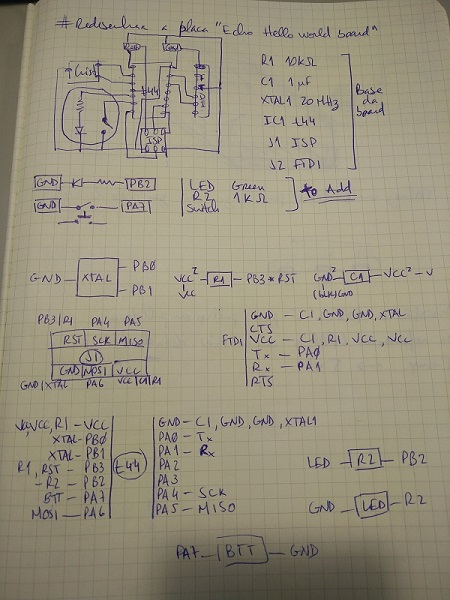 # Redesenhar a placa "Echo Hello world board"
Crist
t44
ISP
R1 10KΩ
C1 1µF
XTAL1 20MHz
IC1 t44
J1 ISP
J2 FTDI
Base da board
GND PB2
GND PA7
LED Green
R2 1KΩ
Switch
to Add
GND XTAL PB0
PB1
VCC² R1 PB3 * RST
VCC
GND² C1 VCC² - V
GND
PB3/R1 PA4 PA5
RST SCK MISO
J1
GND MOSI VCC
GND/XTAL PA6 VCC/C1/R1
FTDI
GND - C1, GND, GND, XTAL
CTS
VCC - C1, R1, VCC, VCC
Tx - PA0
Rx - PA1
RTS
VCC, R1 - VCC
XTAL - PB0
XTAL - PB1
R1, RST - PB3
R2 - PB2
BTT - PA7
MOSI - PA6
t44
GND - C1, GND, GND, XTAL1
PA0 - Tx
PA1 - Rx
PA2
PA3
PA4 - SCK
PA5 - MISO
LED R2 PB2
GND LED R2
PA7 BTT GND